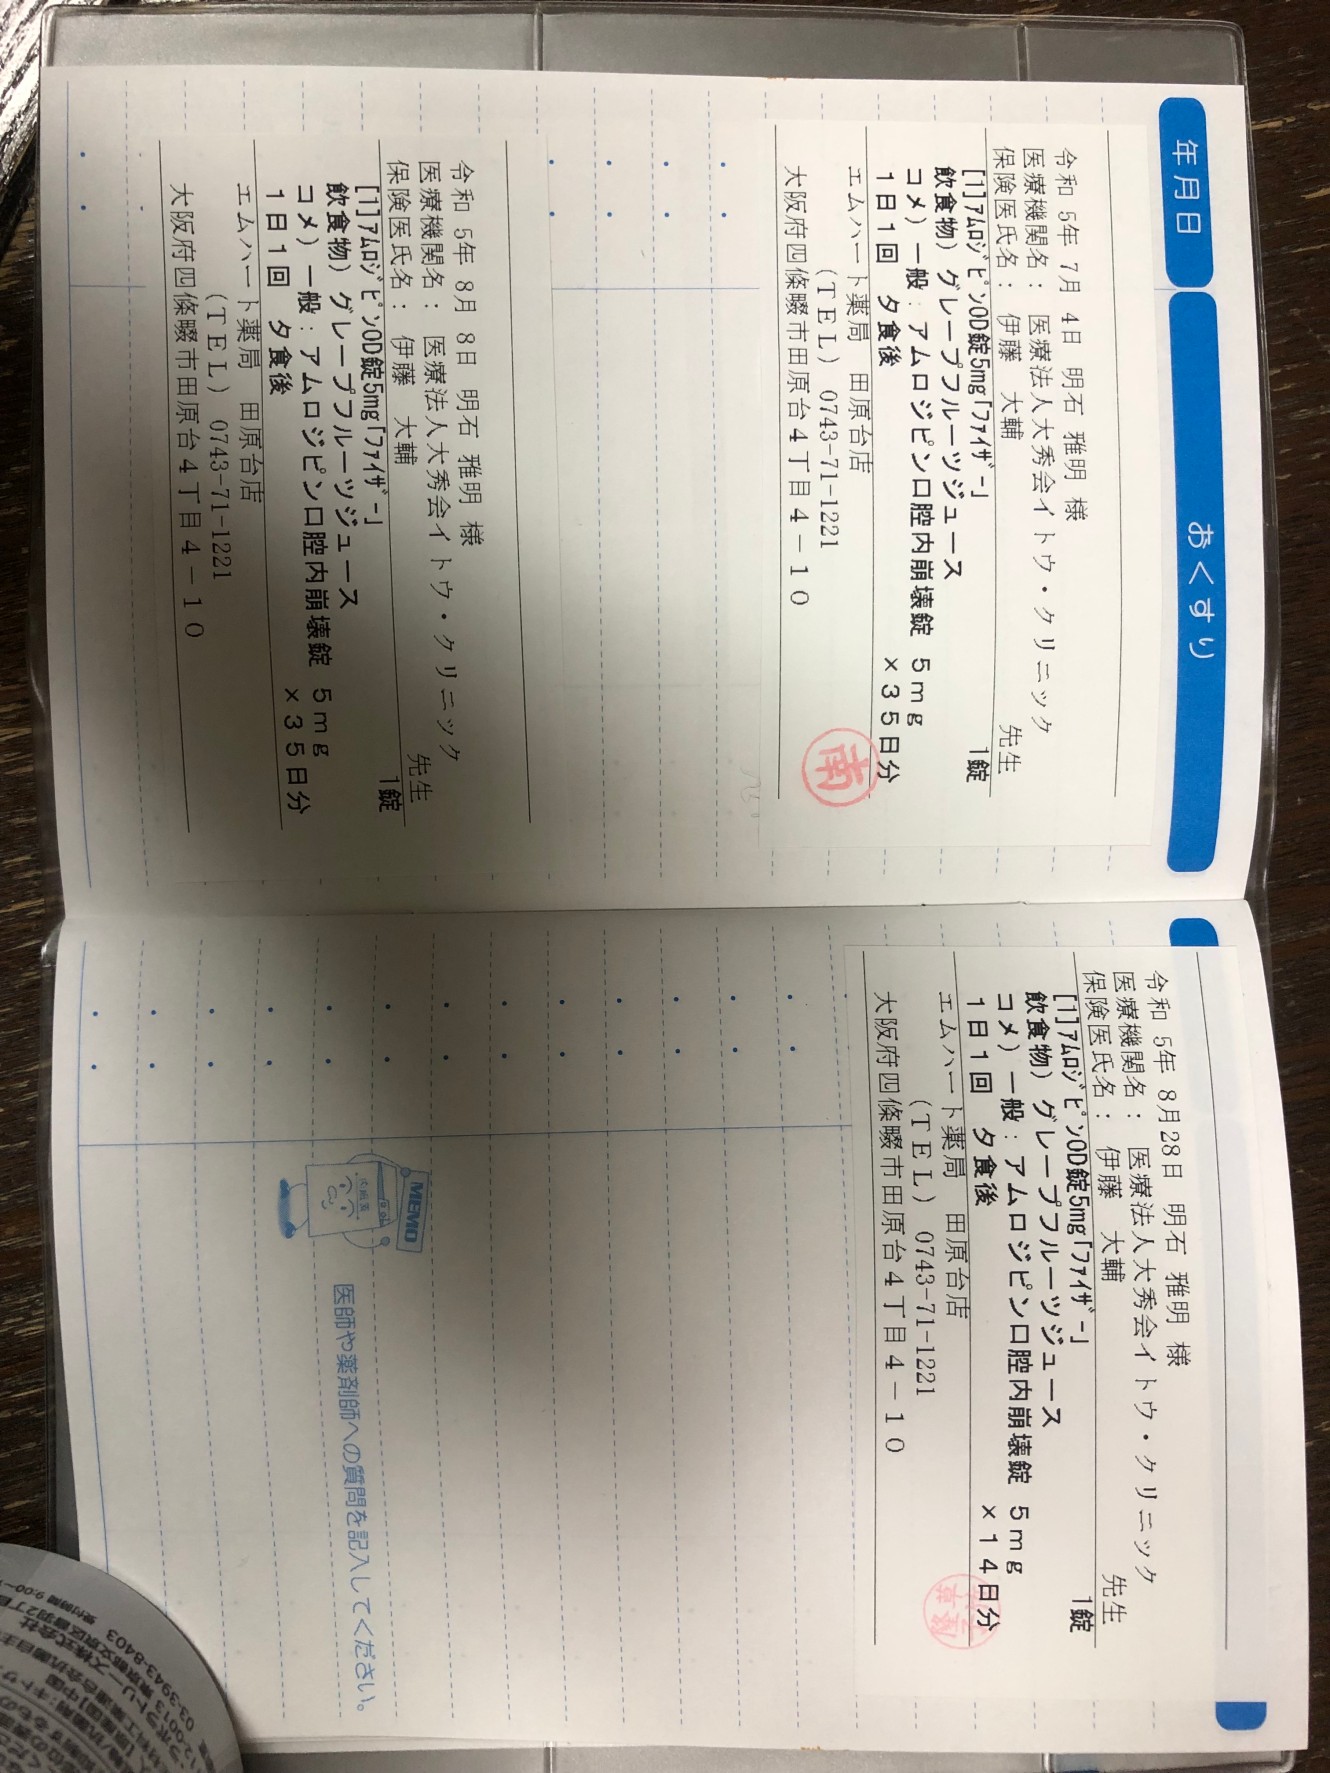 年月日
おくすり
令和 5年 7月 4日 明石 雅明 様
医療機関名： 医療法人大秀会イトウ・クリニック
保険医氏名： 伊藤 大輔 先生
[1]ｱﾑﾛｼﾞﾋﾟﾝOD錠5mg｢ﾌｧｲｻﾞｰ｣ 1錠
飲食物）グレープフルーツジュース
コメ）一般：アムロジピン口腔内崩壊錠 ５ｍｇ
１日１回 夕食後 ×３５日分
エムハート薬局 田原台店
（ＴＥＬ）0743-71-1221
大阪府四條畷市田原台４丁目４－１０
南
令和 5年 8月 8日 明石 雅明 様
医療機関名： 医療法人大秀会イトウ・クリニック
保険医氏名： 伊藤 大輔 先生
[1]ｱﾑﾛｼﾞﾋﾟﾝOD錠5mg｢ﾌｧｲｻﾞｰ｣ 1錠
飲食物）グレープフルーツジュース
コメ）一般：アムロジピン口腔内崩壊錠 ５ｍｇ
１日１回 夕食後 ×３５日分
エムハート薬局 田原台店
（ＴＥＬ）0743-71-1221
大阪府四條畷市田原台４丁目４－１０
令和 5年 8月28日 明石 雅明 様
医療機関名： 医療法人大秀会イトウ・クリニック
保険医氏名： 伊藤 大輔 先生
[1]ｱﾑﾛｼﾞﾋﾟﾝOD錠5mg｢ﾌｧｲｻﾞｰ｣ 1錠
飲食物）グレープフルーツジュース
コメ）一般：アムロジピン口腔内崩壊錠 ５ｍｇ
１日１回 夕食後 ×１４日分
エムハート薬局 田原台店
（ＴＥＬ）0743-71-1221
大阪府四條畷市田原台４丁目４－１０
MEMO
医師や薬剤師への質問を記入してください。
受付時間 9:00～
03-3943-8403
12-0013 東京都文京区音羽2丁目
ラボラトリーズ株式会社